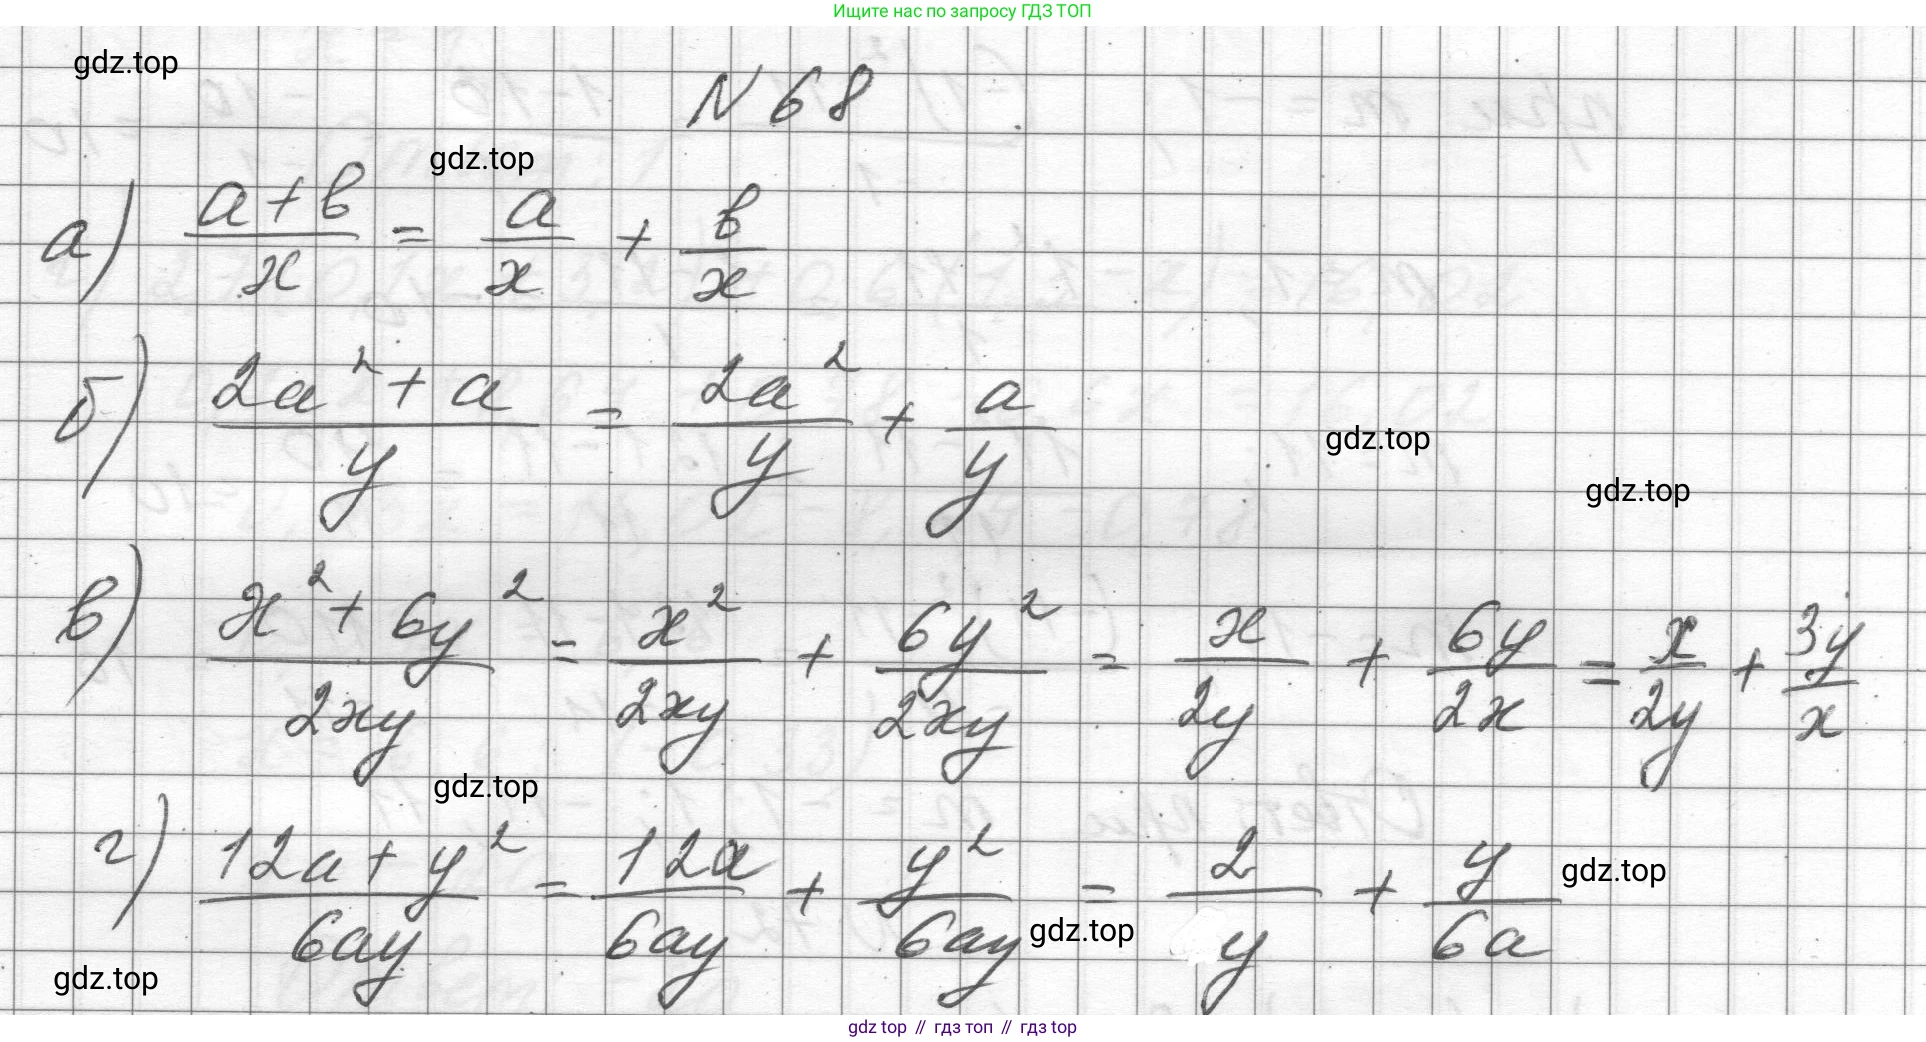 Ищите нас по запросу ГДЗ ТОП
gdz.top
N 68
gdz.top
а) (a+b)/x = a/x + b/x
б) (2a²+a)/y = 2a²/y + a/y
gdz.top
gdz.top
в) (x²+6y²)/2xy = x²/2xy + 6y²/2xy = x/2y + 6y/2x = x/2y + 3y/x
gdz.top
г) (12a+y²)/6ay = 12a/6ay + y²/6ay = 2/y + y/6a
gdz.top
gdz.top
gdz.top
gdz top // гдз топ // гдз top